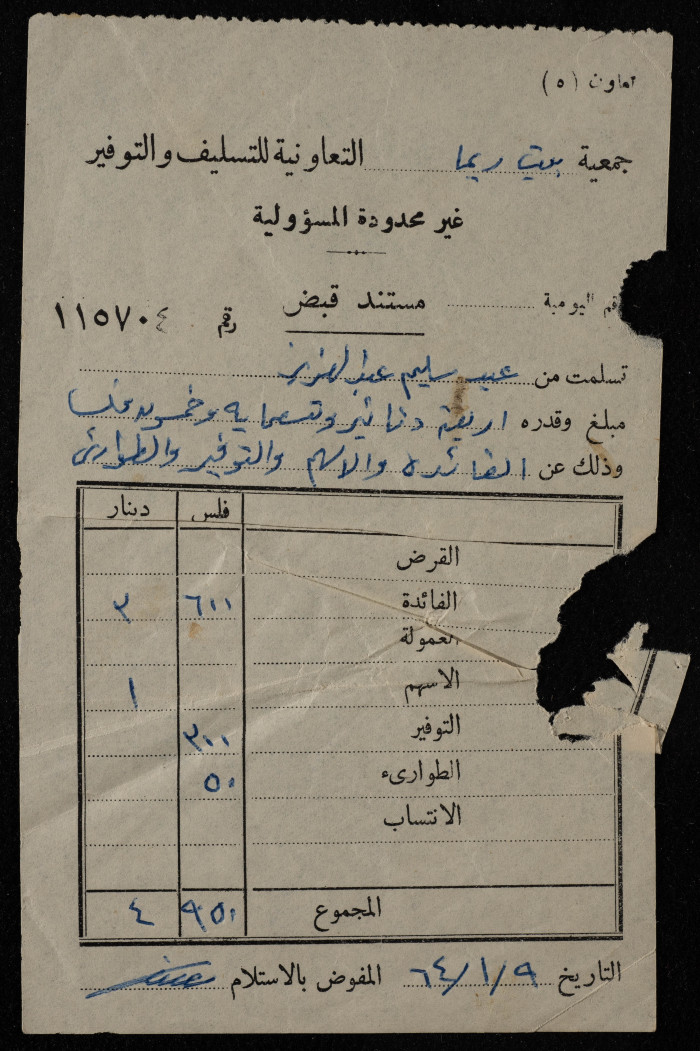 تعاون (٥)
جمعية بيت ريما التعاونية للتسليف والتوفير
غير محدودة المسؤولية
رقم اليومية مستند قبض رقم ١١٥٧٠٤
تسلمت من عبد سليم عبد العزيز
مبلغ وقدره اربعة دنانير وتسعماية وخمسون فلسا
وذلك عن الفائدة والاسهم والتوفير والطوارئ
فلس دينار
القرض
الفائدة ٦٠٠ ٣
العمولة
الاسهم ١
التوفير ٣٠٠
الطوارىء ٥٠
الانتساب
المجموع ٩٥٠ ٤
التاريخ ٦٤/١/٩ المفوض بالاستلام